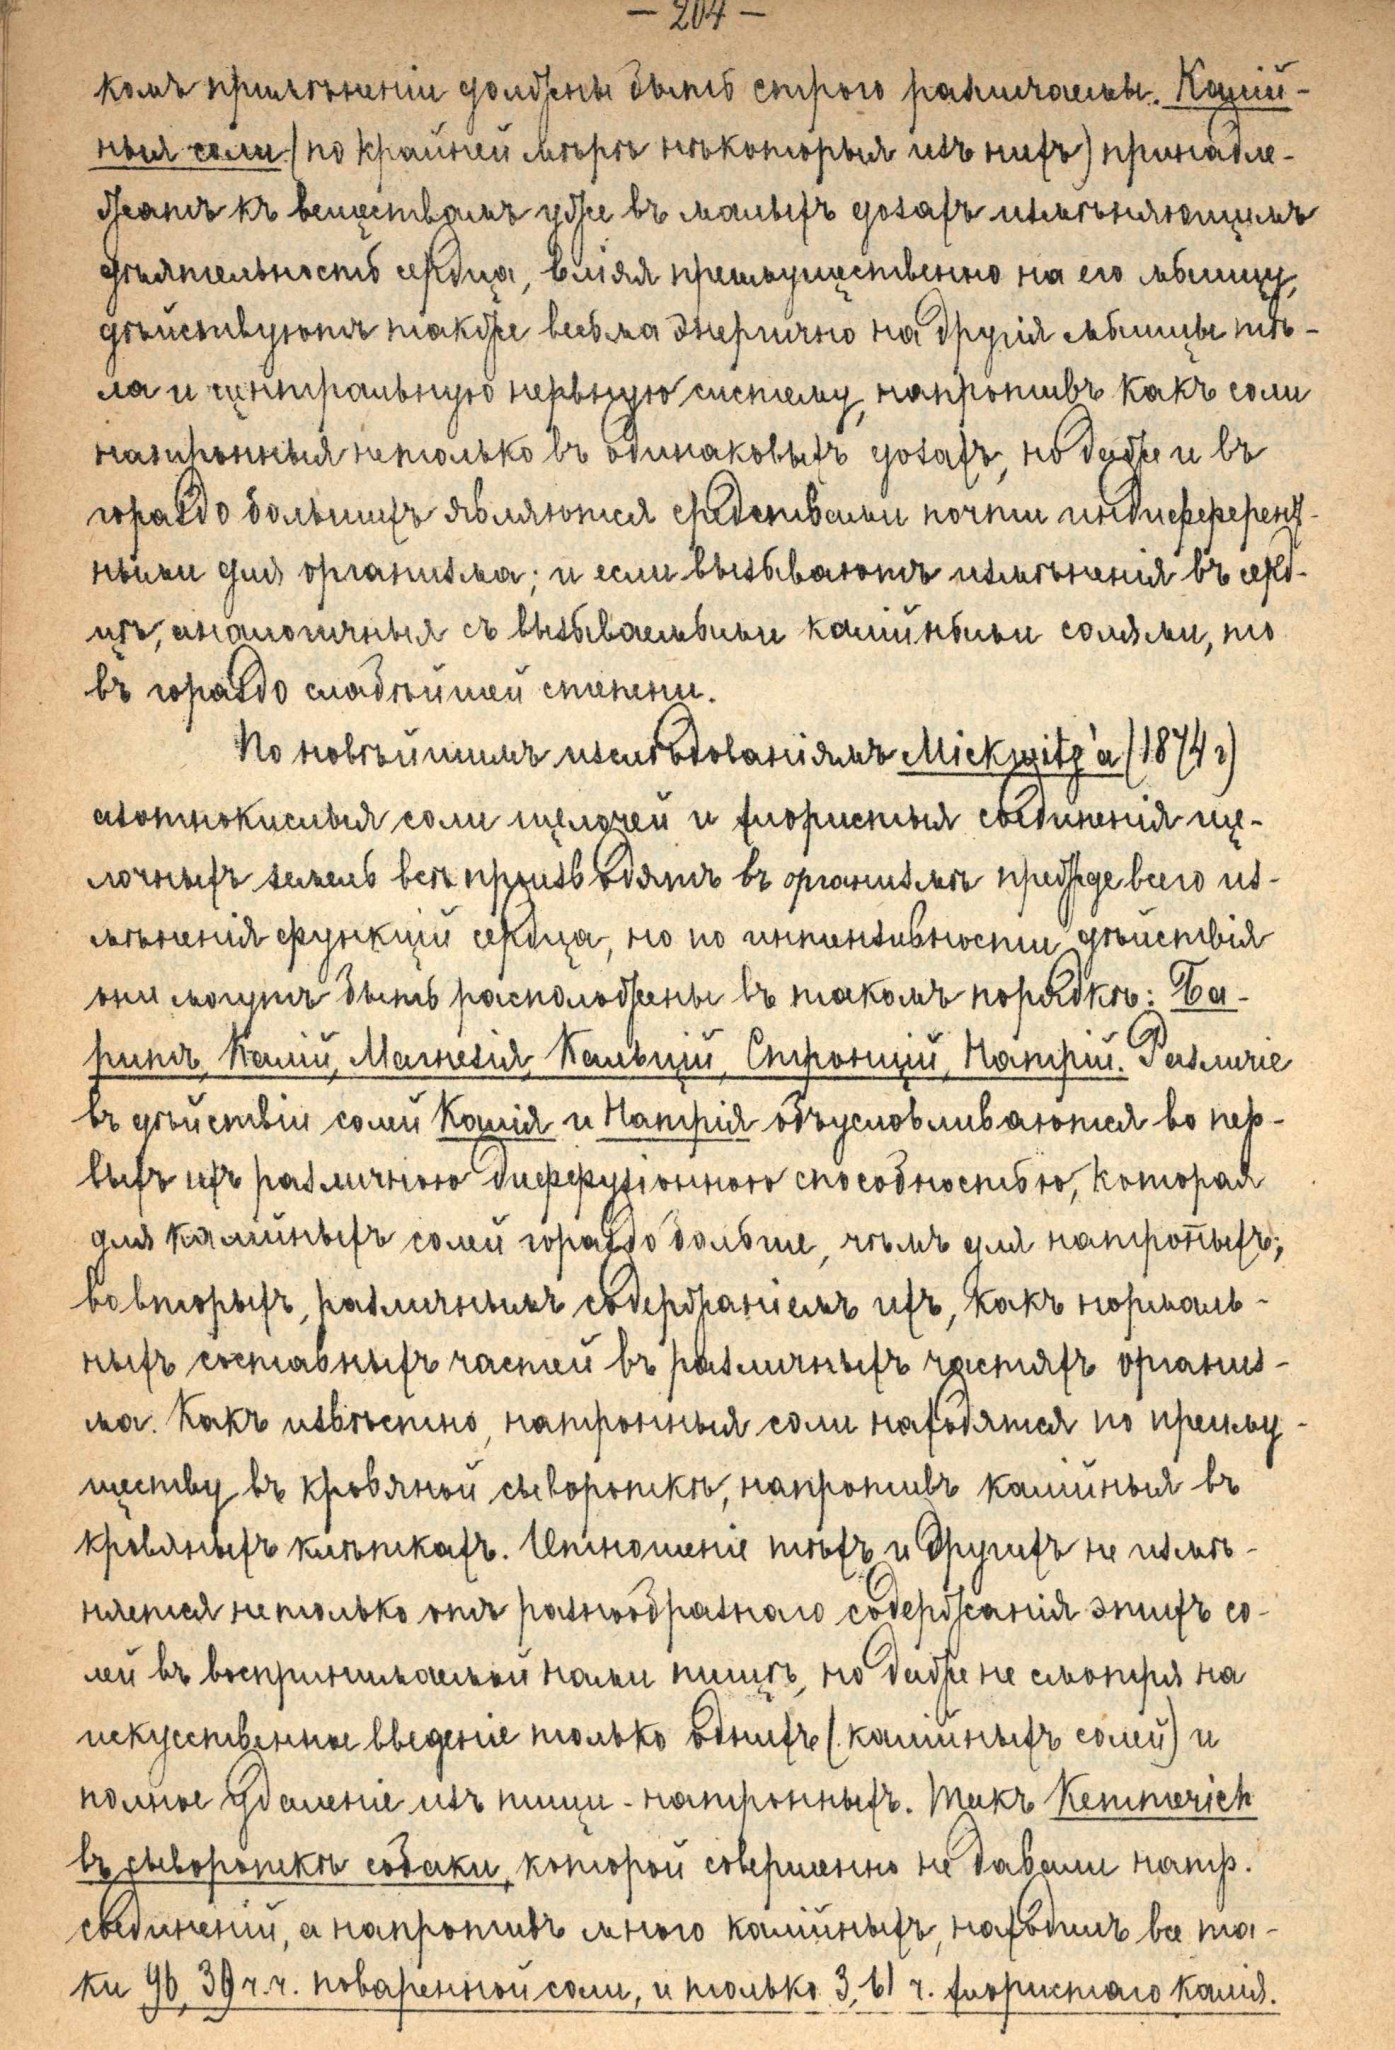 — 204 —
комъ примѣненіи должны быть строго различаемы. Калій-
ныя соли (по крайней мѣрѣ нѣкоторыя изъ нихъ) принадле-
жатъ къ веществамъ уже въ малыхъ дозахъ измѣняющимъ
дѣятельность сердца, вліяя преимущественно на его мышцу,
дѣйствуютъ также весьма энергично на другія мышцы тѣ-
ла и центральную нервную систему, напротивъ какъ соли
натронныя нетолько въ одинаковыхъ дозахъ, но даже и въ
гораздо большихъ являются средствами почти индифферент-
ными для организма; и если вызываютъ измѣненія въ серд-
цѣ, аналогичныя съ вызываемыми калійными солями, то
въ гораздо слабѣйшей степени.
По новѣйшимъ изслѣдованіямъ Mickwitz'a (1874 г)
азотнокислыя соли щелочей и хлористыя соединенія ще-
лочныхъ земель всѣ производятъ въ организмѣ прежде всего из-
мѣненія функцій сердца, но по интензивности дѣйствія
они могутъ быть расположены въ такомъ порядкѣ: Ба-
ритъ, Калій, Магнезія, Кальцій, Стронцій, Натрій. Различіе
въ дѣйствіи солей Калія и Натрія обусловливаются во пер-
выхъ ихъ различною диффузіонною способностью, которая
для калійныхъ солей гораздо больше, чѣмъ для натронныхъ;
вовторыхъ, различнымъ содержаніемъ ихъ, какъ нормаль-
ныхъ составныхъ частей въ различныхъ частяхъ организ-
ма. Какъ извѣстно, натронныя соли находятся по преиму-
ществу въ кровяной сывороткѣ, напротивъ калійныя въ
кровяныхъ клѣткахъ. Отношеніе тѣхъ и другихъ не измѣ-
няется нетолько отъ разнообразнаго содержанія этихъ со-
лей въ воспринимаемой нами пищѣ, но даже не смотря на
искусственное введеніе только однихъ (калійныхъ солей) и
полное удаленіе изъ пищи - натронныхъ. Такъ Kemmerich
въ сывороткѣ собаки, которой совершенно не давали натр.
соединеній, а напротивъ много калійныхъ, находилъ все та-
ки 96,39 ч.ч. поваренной соли, и только 3,61 ч. хлористаго калія.